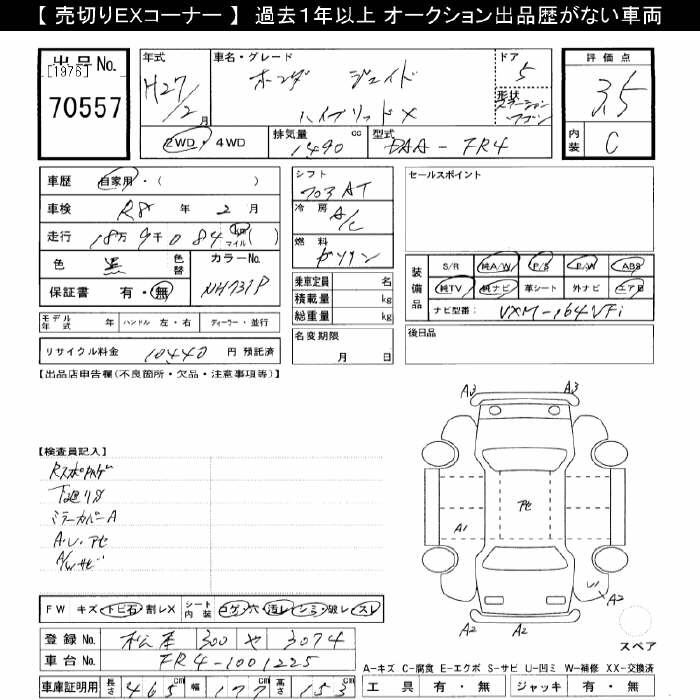 【 売切りEXコーナー 】 過去1年以上 オークション出品歴がない車両
出品No.
[1976]
70557
年式
H27/2月
車名・グレード
ホンダ ジェイド
ハイブリッドX
ドア
5
形状
ステーションワゴン
2WD・4WD
排気量 1490 cc
型式 DAA-FR4
評価点
3.5
内装 C
車歴 自家用・( )
車検 R8 年 2 月
走行 18万9千084 km マイル ( )
色 黒 色替 カラーNo.
NH731P
保証書 有・無
モデル年式 年 ハンドル 左・右 ディーラー・並行
リサイクル料金 10440 円 預託済
シフト
703 AT
冷房
A/C
燃料
ガソリン
乗車定員 名
積載量 kg
総重量 kg
名変期限
月 日
セールスポイント
装備品
S/R 純A/W P/S P/W ABS
純TV 純ナビ 革シート 外ナビ エアB
ナビ型番: VXM-164VFi
後日品
【出品店申告欄(不良箇所・欠品・注意事項等)】
【検査員記入】
下廻りサビ
ミラーカバーA
A・U・アセ
A/Wサビ
A3 A3
アセ
A1
A2 A2 A2
FW キズ トビ石 割レX シート内装 コゲ 穴 汚レ シミ 破レ スレ
登録No. 松本 300 や 3074
車台No. FR4-1001225
車庫証明用 長さ 465 cm 幅 177 cm 高さ 153 cm
スペア
A-キズ C-腐食 E-エクボ S-サビ U-凹ミ W-補修 XX-交換済
工具 有・無 ジャッキ 有・無